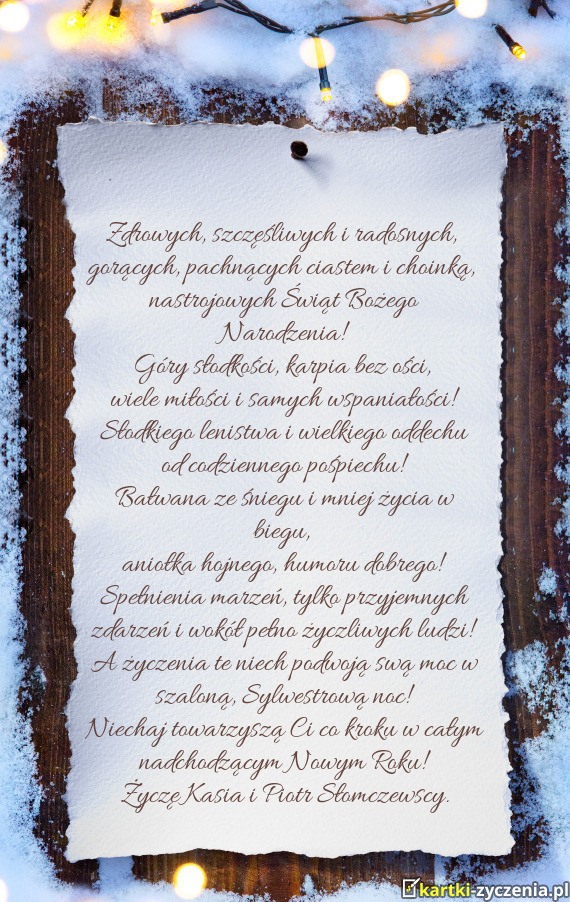 Zdrowych, szczęśliwych i radosnych,
gorących, pachnących ciastem i choinką,
nastrojowych Świąt Bożego
Narodzenia!
Góry słodkości, karpia bez ości,
wiele miłości i samych wspaniałości!
Słodkiego lenistwa i wielkiego oddechu
od codziennego pośpiechu!
Bałwana ze śniegu i mniej życia w
biegu,
aniołka hojnego, humoru dobrego!
Spełnienia marzeń, tylko przyjemnych
zdarzeń i wokół pełno życzliwych ludzi!
A życzenia te niech podwoją swą moc w
szaloną, Sylwestrową noc!
Niechaj towarzyszą Ci co kroku w całym
nadchodzącym Nowym Roku!
Życzę Kasia i Piotr Słomczewscy.
kartki-zyczenia.pl